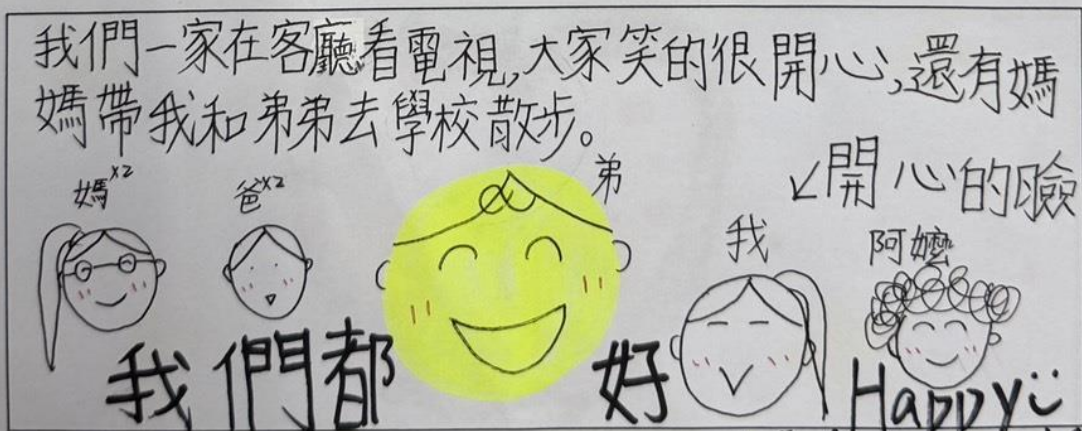 我們一家在客廳看電視,大家笑的很開心,還有媽
媽帶我和弟弟去學校散步。
↙開心的臉
媽x2
爸x2
弟
我
阿嬤
我們都好Happy